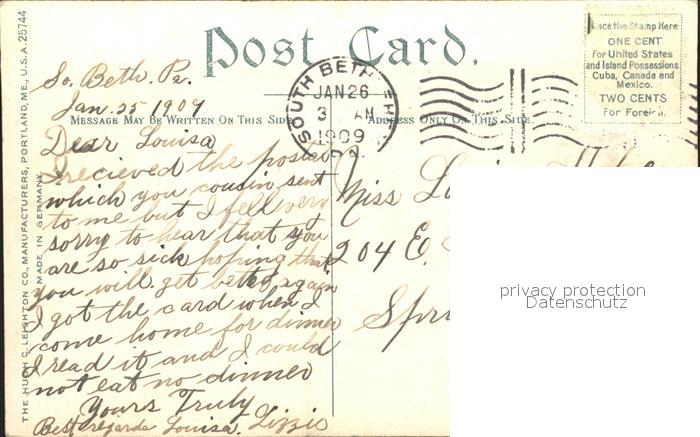 Post Card.
Place the Stamp Here
ONE CENT
For United States
and Island Possessions
Cuba, Canada and
Mexico.
TWO CENTS
For Foreign.
SOUTH BETHLEHEM
JAN 26
3 AM
1909
PA.
MESSAGE MAY BE WRITTEN ON THIS SIDE
ADDRESS ONLY ON THIS SIDE
THE HUGH C. LEIGHTON CO., MANUFACTURERS, PORTLAND, ME., U.S.A. 25744
MADE IN GERMANY
So. Beth. Pa.
Jan. 25 1909
Dear Louisa
I recieved the postal
which you cousin sent
to me but I fell very
sorry to hear that you
are so sick hoping that
you will get better again
I got the card when I
come home for dinner
I read it and I could
not eat no dinner
Yours Truly
Best regards Louisa. Lizzie
Miss
204 E.
Spri
privacy protection
Datenschutz